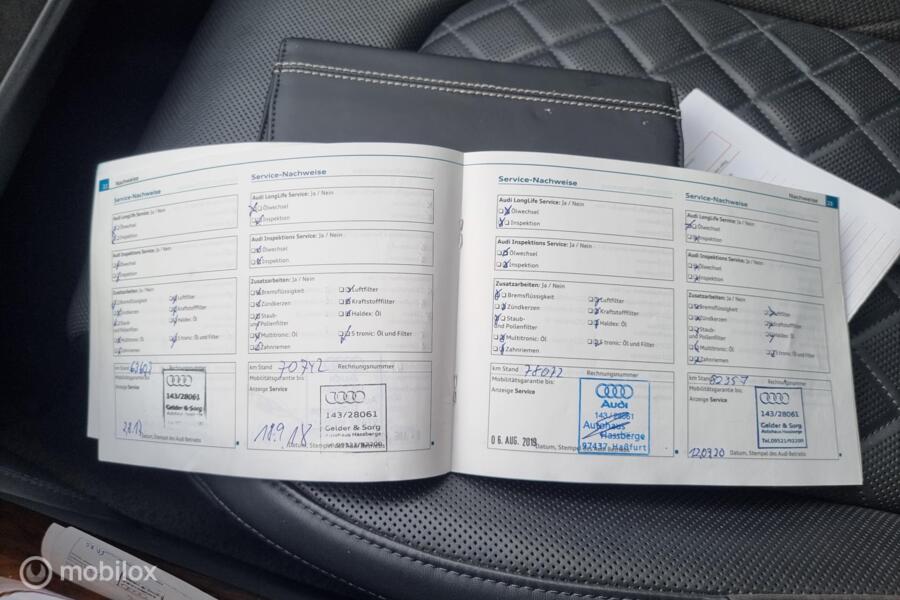 22 Nachweise
Service-Nachweise
Audi LongLife Service: Ja / Nein
Ölwechsel
Inspektion
Audi Inspektions Service: Ja / Nein
Ölwechsel
Inspektion
Zusatzarbeiten: Ja / Nein
Bremsflüssigkeit
Zündkerzen
Staub-
und Pollenfilter
Multitronic: Öl
Zahnriemen
Luftfilter
Kraftstofffilter
Haldex: Öl
S tronic: Öl und Filter
km Stand
Mobilitätsgarantie bis:
Anzeige Service
143/28061
Gelder & Sorg
Datum, Stempel des Audi Betriebs
Service-Nachweise
Audi LongLife Service: Ja / Nein
Ölwechsel
Inspektion
Audi Inspektions Service: Ja / Nein
Ölwechsel
Inspektion
Zusatzarbeiten: Ja / Nein
Bremsflüssigkeit
Zündkerzen
Staub-
und Pollenfilter
Multitronic: Öl und Filter
Zahnriemen
Luftfilter
Kraftstofffilter
Haldex: Öl
S tronic: Öl und Filter
km Stand 70742 Rechnungsnummer
Mobilitätsgarantie bis:
Anzeige Service
143/28061
Gelder & Sorg
Autohaus Hassberge
09521/92200
18.9.18 Datum, Stempel des Audi Betriebs
Service-Nachweise
Audi LongLife Service: Ja / Nein
Ölwechsel
Inspektion
Audi Inspektions Service: Ja / Nein
Ölwechsel
Inspektion
Zusatzarbeiten: Ja / Nein
Bremsflüssigkeit
Zündkerzen
Staub-
und Pollenfilter
Multitronic: Öl und Filter
Zahnriemen
Luftfilter
Kraftstofffilter
Haldex: Öl
S tronic: Öl und Filter
km Stand 78072 Rechnungsnummer
Mobilitätsgarantie bis:
Anzeige Service
Audi
143/28061
Autohaus
Hassberge
97437 Haßfurt
06. AUG. 2019
Datum, Stempel des Audi Betriebs
Nachweise 23
Service-Nachweise
Audi LongLife Service: Ja / Nein
Ölwechsel
Inspektion
Audi Inspektions Service: Ja / Nein
Ölwechsel
Inspektion
Zusatzarbeiten: Ja / Nein
Bremsflüssigkeit
Zündkerzen
Staub-
und Pollenfilter
Multitronic: Öl und Filter
Zahnriemen
Luftfilter
Kraftstofffilter
Haldex: Öl
S tronic: Öl und Filter
km Stand 82357 Rechnungsnummer
Mobilitätsgarantie bis:
Anzeige Service
143/28061
Gelder & Sorg
Autohaus Hassberge
Tel.09521/92200
Datum, Stempel des Audi Betriebs
mobilox